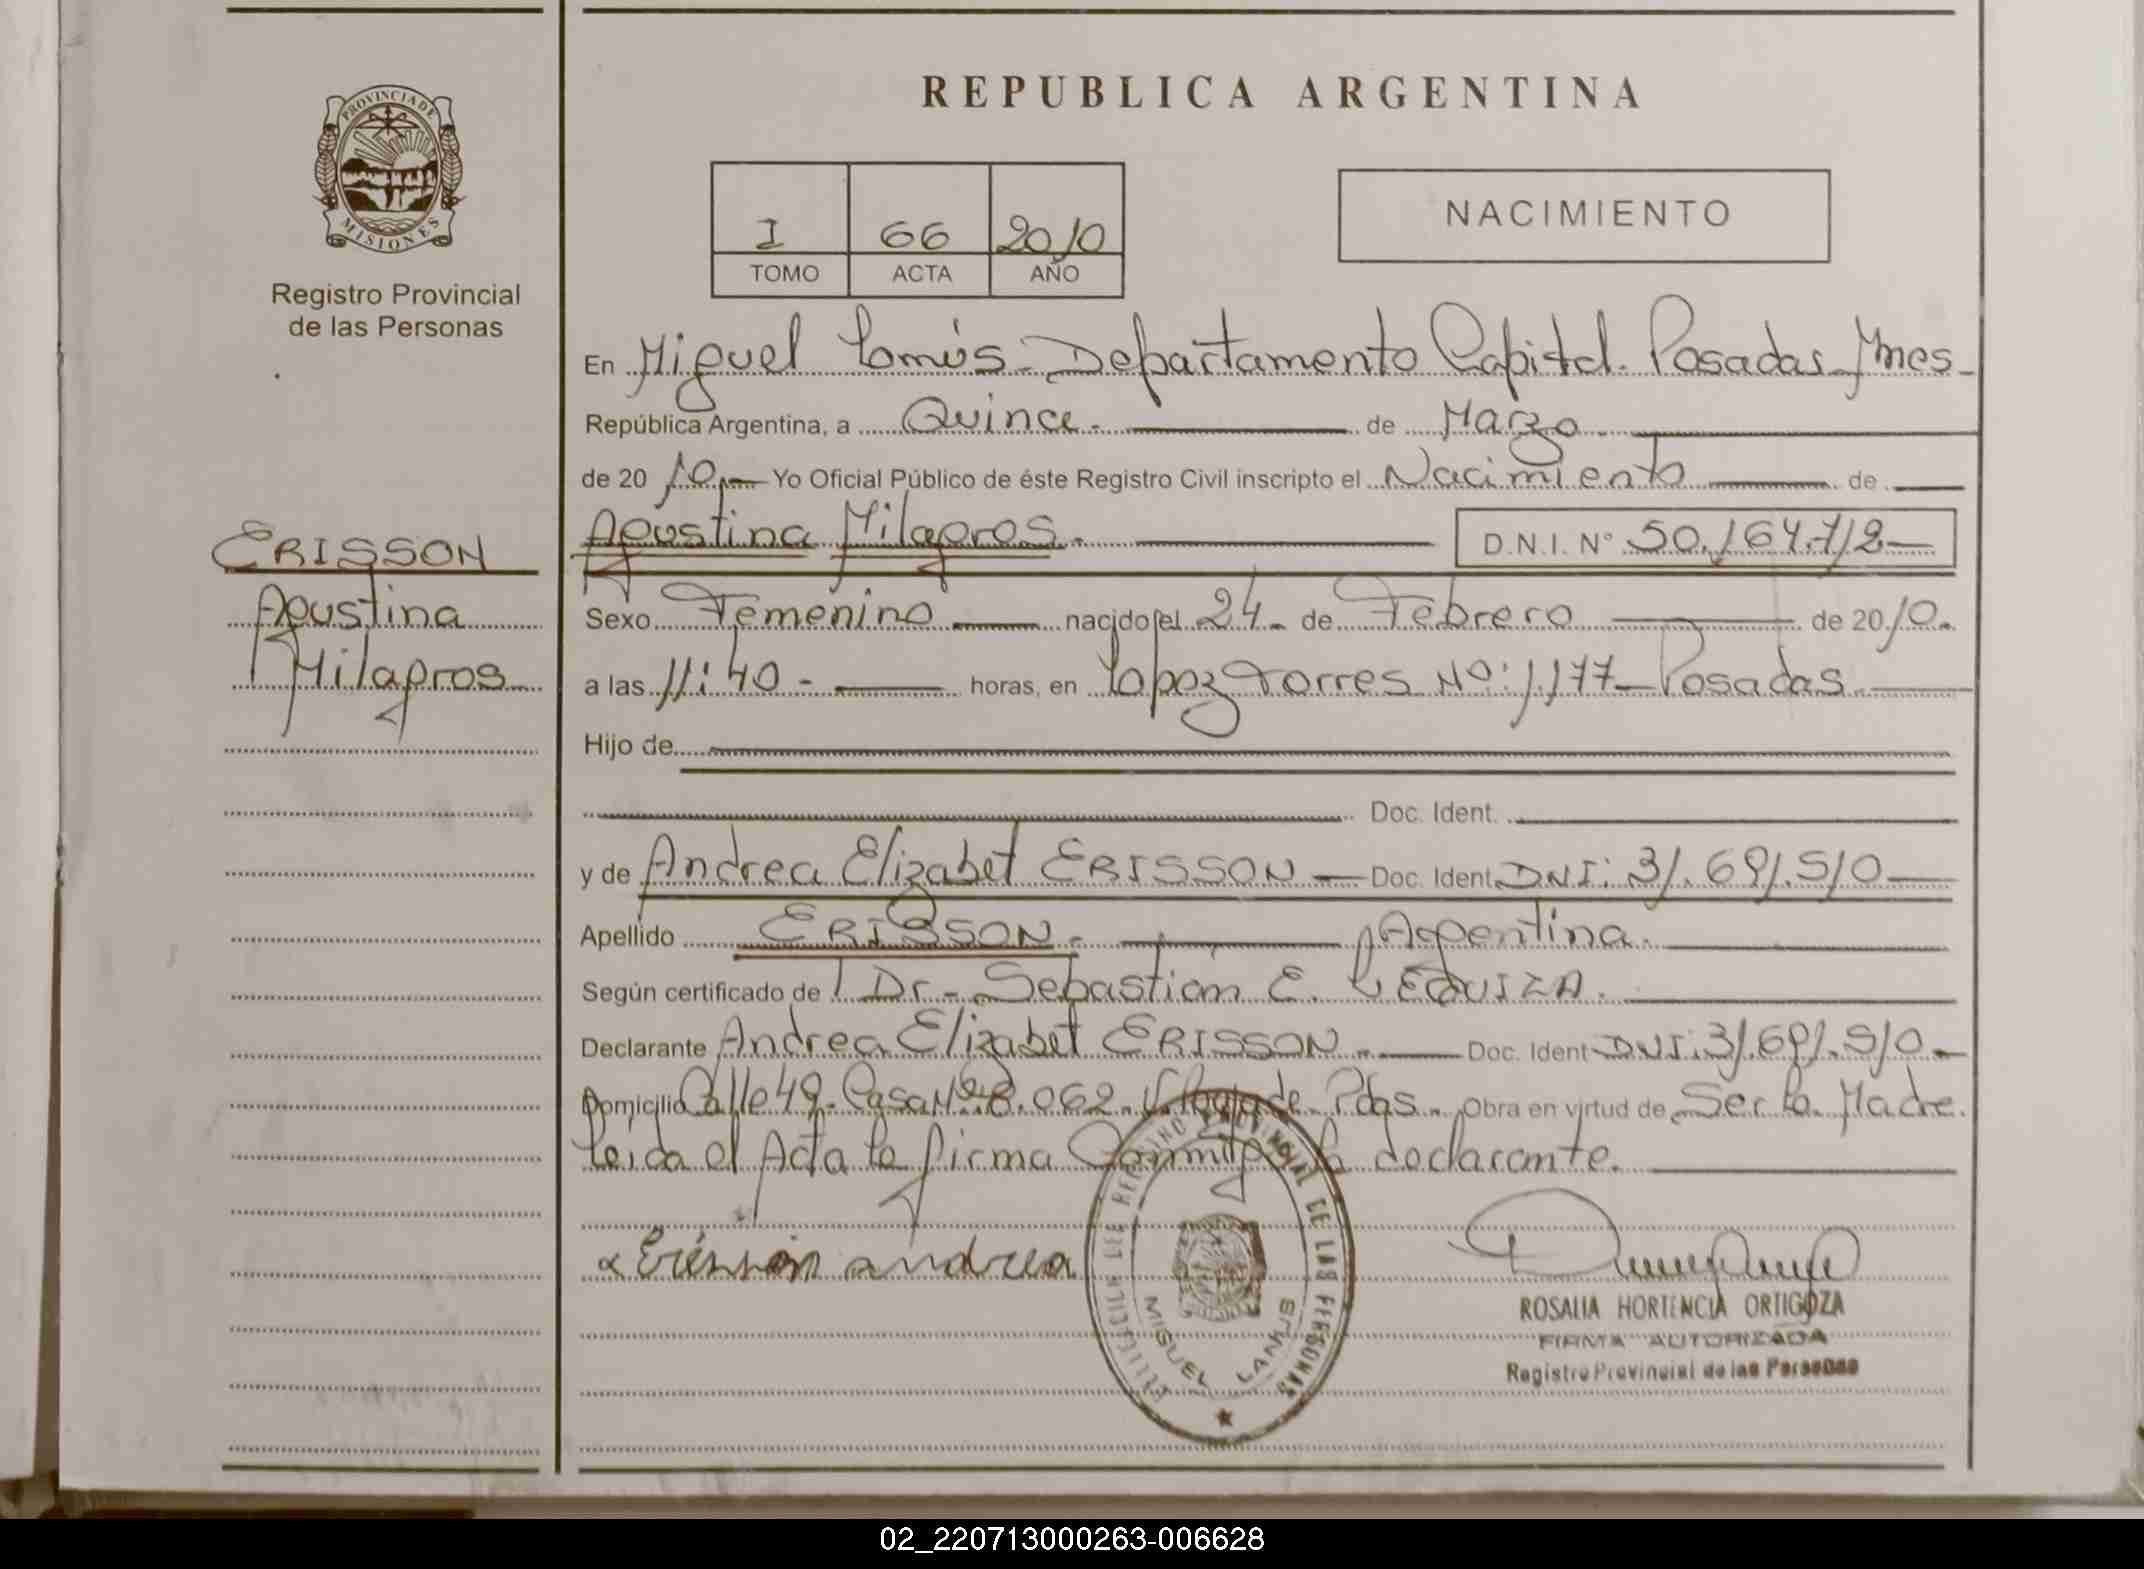 REPUBLICA ARGENTINA
PROVINCIA DE
MISIONES
Registro Provincial
de las Personas
I 66 2010
TOMO ACTA AÑO
NACIMIENTO
En Miguel Lanús - Departamento Capital. Posadas Mnes -
República Argentina, a Quince. de Marzo
de 2010 Yo Oficial Público de éste Registro Civil inscripto el Nacimiento de
ERISSON
Agustina
Milagros
Agustina Milagros. D.N.I. N° 50.164.712
Sexo Femenino nacido el 24 de Febrero de 2010.
a las 11:40 - horas, en Lopez Torres Nº: 1.177 - Posadas
Hijo de
Doc. Ident.
y de Andrea Elizabet ERISSON - Doc. Ident. DNI: 31.691.510
Apellido ERISSON. Argentina.
Según certificado de Dr - Sebastian E.
Declarante Andrea Elizabet ERISSON Doc. Ident DNI: 31.691.510
Domicilio Calle 49 - Casa Nº 8.062. de Pdas. Obra en virtud de Ser la Madre.
Leída el Acta la firma la declarante.
Erisson andrea
REGISTRO PROVINCIAL DE LAS PERSONAS
MIGUEL LANUS
ROSALIA HORTENCIA ORTIGOZA
FIRMA AUTORIZADA
Registro Provincial de las Personas
02_220713000263-006628